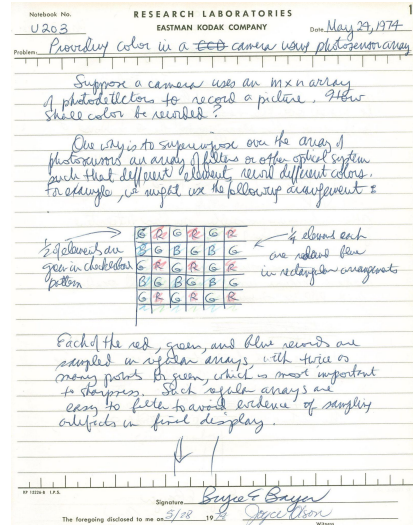 1
Notebook No. RESEARCH LABORATORIES
U203 EASTMAN KODAK COMPANY Date May 29, 1974
Problem: Providing color in a CCD camera using photosensor array
Suppose a camera uses an m x n array
of photodetectors to record a picture. How
shall color be recorded?
One way is to superimpose over the array of
photosensors an array of filters or other optical system
such that different elements record different colors.
For example, we might use the following arrangement:
G R G R G R
½ of elements are B G B G B G ¼ elements each
green in checkerboard G R G R G R are red and blue
pattern B G B G B G in rectangular arrangements
G R G R G R
Each of the red, green, and blue records are
sampled in regular arrays, with twice as
many points for green, which is most important
to sharpness. Such regular arrays are
easy to filter to avoid evidence of sampling
artifacts in final display.
Signature Bryce E Bayer
The foregoing disclosed to me on 5/28 19 Joyce
Witness